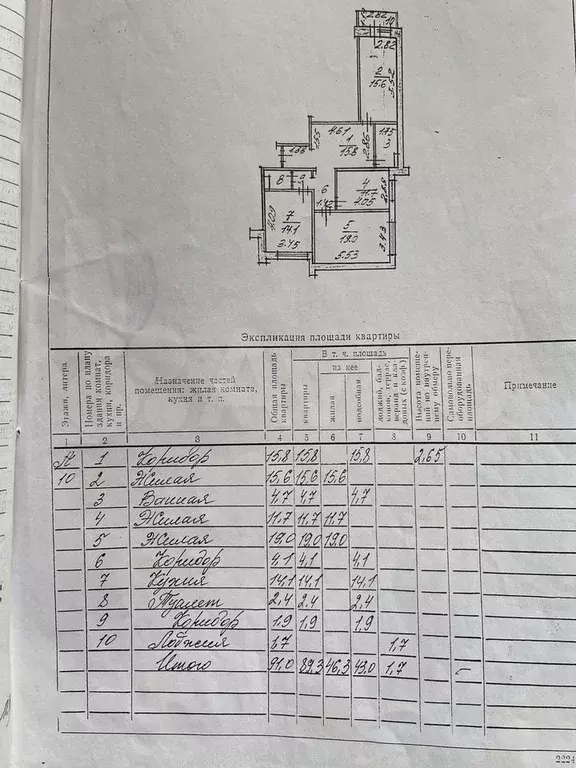 2.82
2.82
2
15.6
5.52
4.61
2.55
1
15.8
2.86
1.75
3
1.38
8
9
6
1.40
4
11.7
4.05
2.55
7
14.1
3.45
4.09
5
19.0
5.53
3.43
Экспликация площади квартиры
Этажи, литера
Номера по плану здания комнат, кухни, коридора и пр.
Назначение частей помещения: жилая комната, кухня и т. п.
Общая площадь квартиры
В т. ч. площадь
квартиры
из нее
жилая
подсобная
лоджии, балконов, террас, веранд и кладовых (с коэф.)
Высота помещений по внутреннему обмеру
Самовольно переоборудованная площадь
Примечание
1 2 3 4 5 6 7 8 9 10 11
А 1 Коридор 15,8 15,8 15,8 2,65
10 2 Жилая 15,6 15,6 15,6
3 Ванная 4,7 4,7 4,7
4 Жилая 11,7 11,7 11,7
5 Жилая 19,0 19,0 19,0
6 Коридор 4,1 4,1 4,1
7 Кухня 14,1 14,1 14,1
8 Туалет 2,4 2.4 2.4
9 Коридор 1,9 1,9 1,9
10 Лоджия 1,7 1,7
Итого 91,0 89,3 46,3 43,0 1,7 –